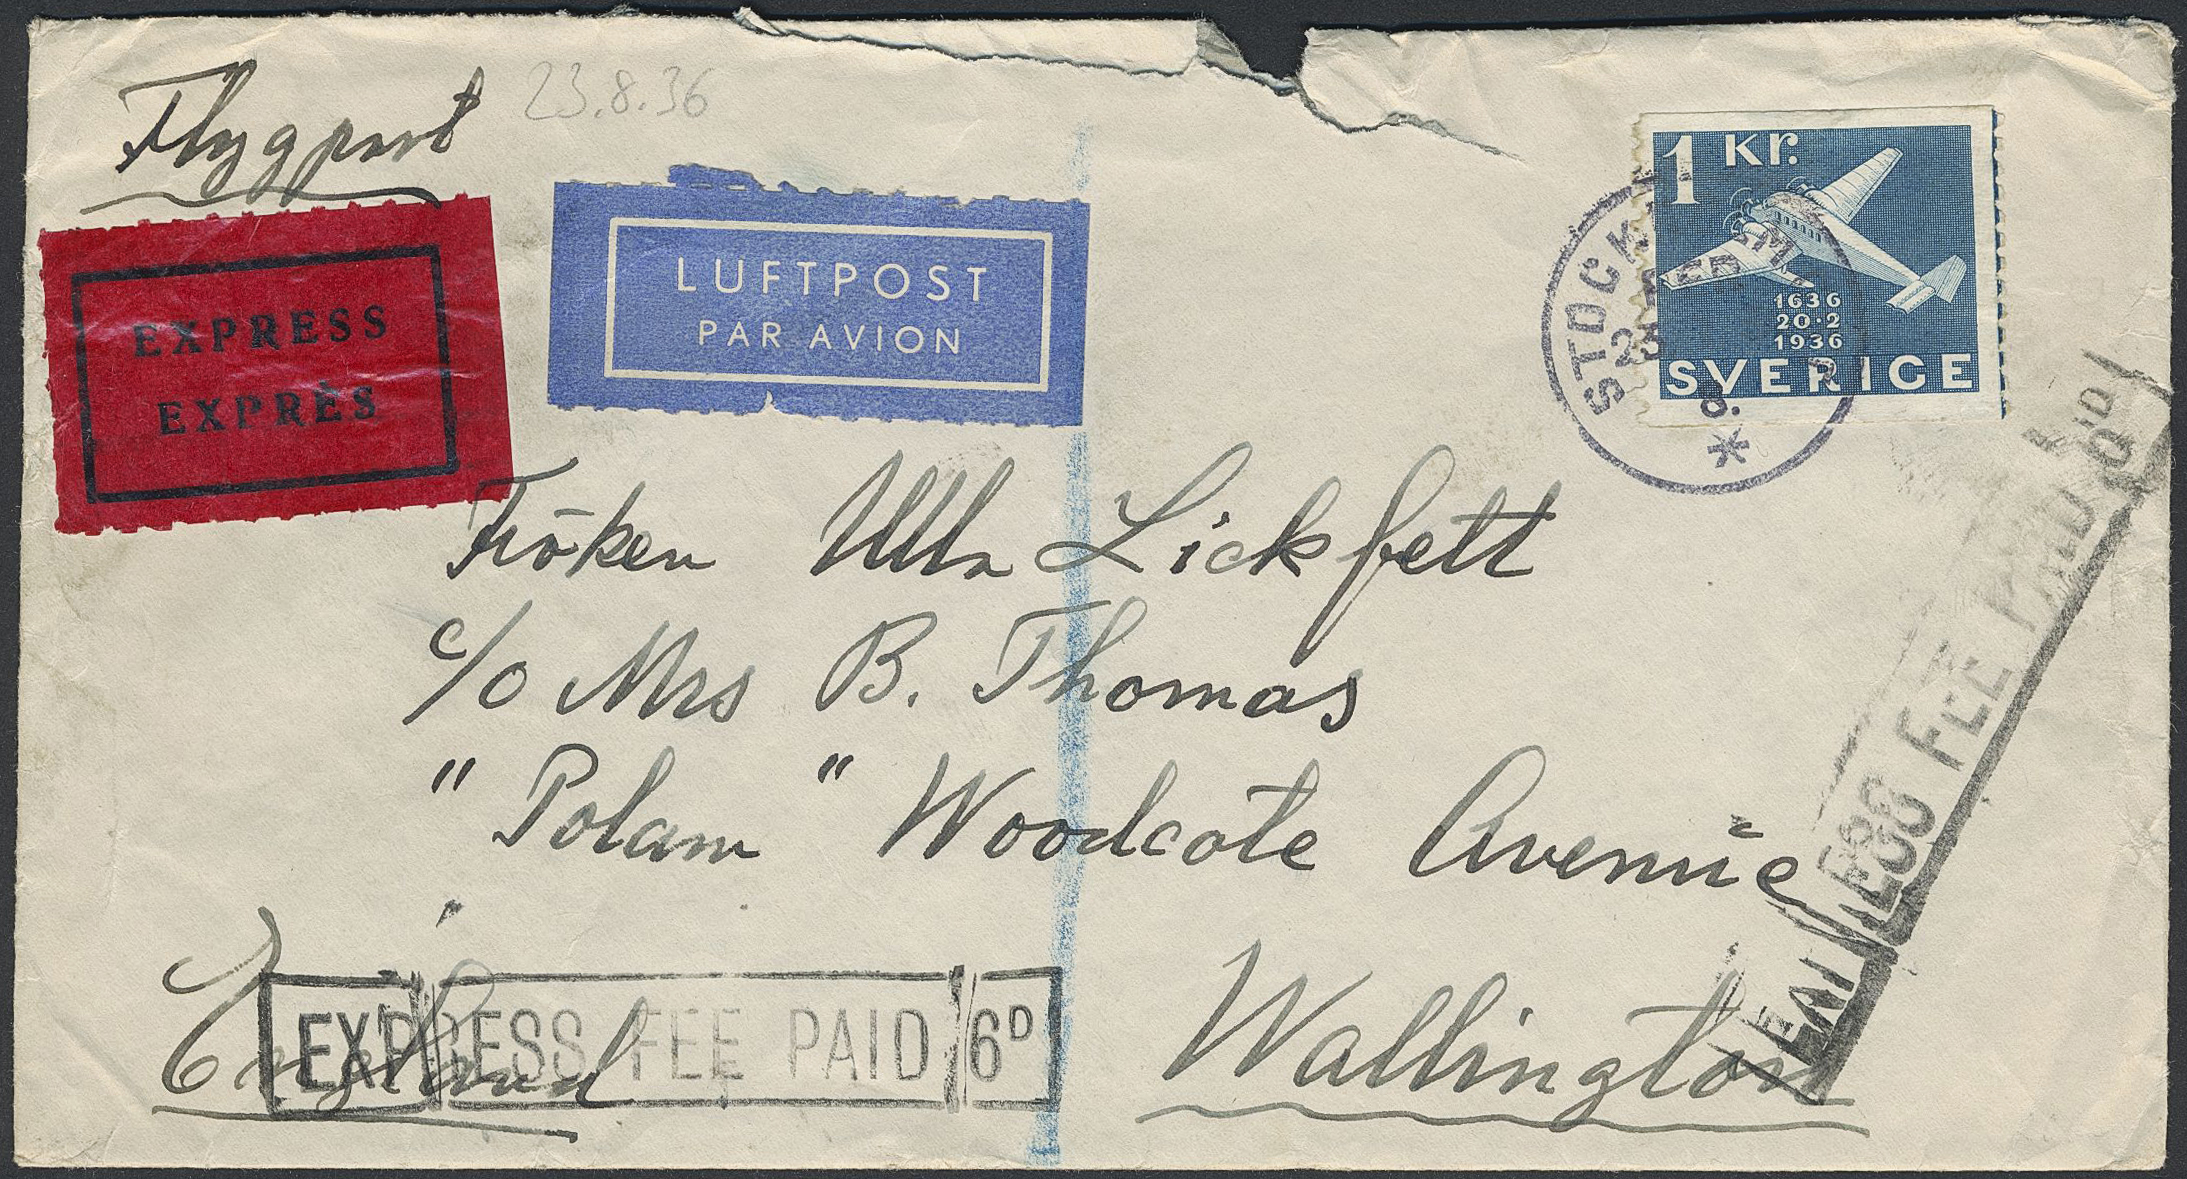 Flygpost
23.8.36
EXPRESS
EXPRÈS
LUFTPOST
PAR AVION
1 Kr.
1636
20·2
1936
SVERIGE
STOCK
Fröken Ulla Lickfett
c/o Mrs B. Thomas
"Polam" Woodcote Avenue
Wallington
England
EXPRESS FEE PAID 6D
FEE PAID